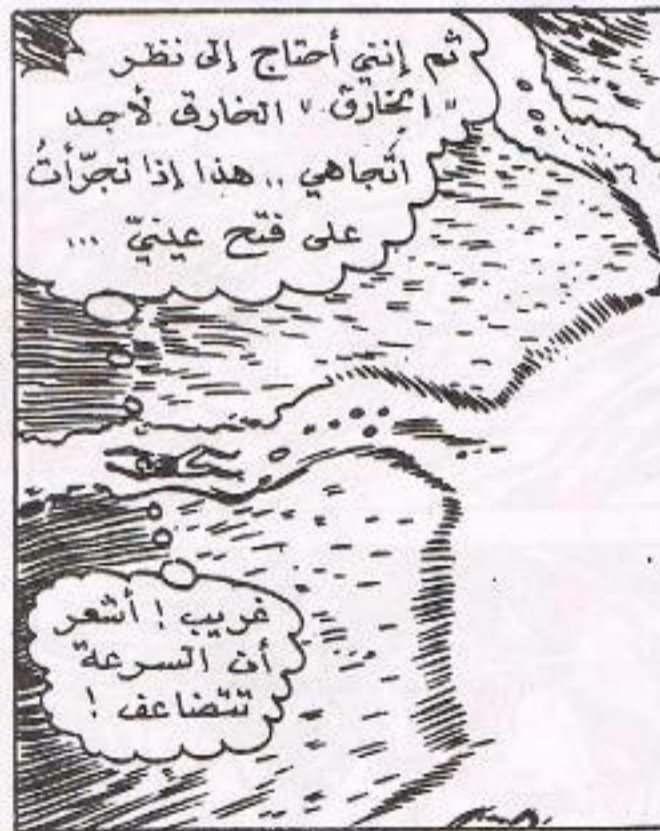 ثم إنني أحتاج إلى نظر
"الخارق" الخارق لأجد
اتّجاهي .. هذا إذا تجرّأتُ
على فتح عينيّ ...
غريب ! أشعر
أن السرعة
تتضاعف !